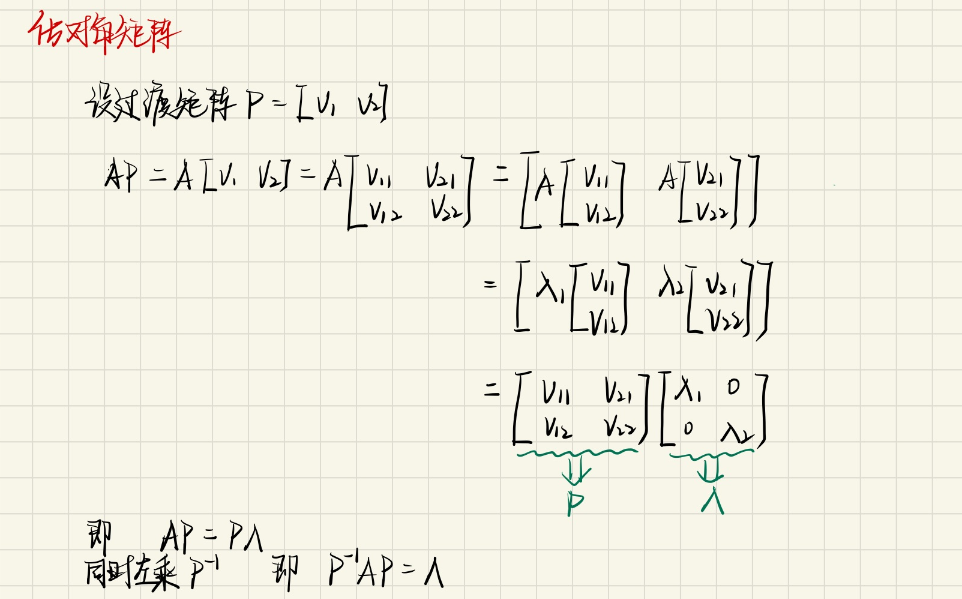 估对角矩阵
设过渡矩阵 P = [v₁ v₂]
AP = A[v₁ v₂] = A[v₁₁ v₂₁; v₁₂ v₂₂] = [A[v₁₁; v₁₂] A[v₂₁; v₂₂]]
= [λ₁[v₁₁; v₁₂] λ₂[v₂₁; v₂₂]]
= [v₁₁ v₂₁; v₁₂ v₂₂][λ₁ 0; 0 λ₂]
⇓ ⇓
P Λ
即 AP = PΛ
同时左乘 P⁻¹ 即 P⁻¹AP = Λ